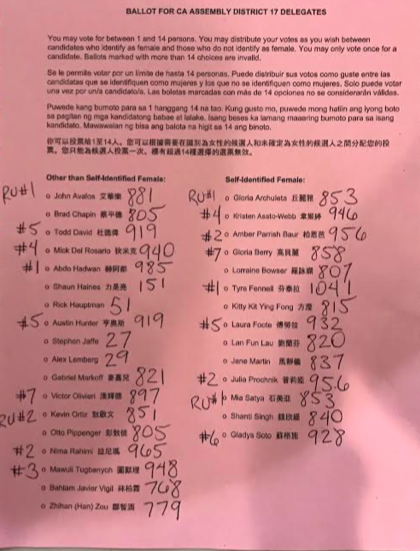 BALLOT FOR CA ASSEMBLY DISTRICT 17 DELEGATES
You may vote for between 1 and 14 persons. You may distribute your votes as you wish between
candidates who identify as female and those who do not identify as female. You may only vote once for a
candidate. Ballots marked with more than 14 choices are invalid.
Se le permite votar por un límite de hasta 14 personas. Puede distribuir sus votos como guste entre las
candidatas que se identifiquen como mujeres y los que no se identifiquen como mujeres. Solo puede votar
una vez por un/a candidato/a. Las boletas marcadas con más de 14 opciones no se considerarán válidas.
Puwede kang bumoto para sa 1 hanggang 14 na tao. Kung gusto mo, puwede mong hatiin ang iyong boto
sa pagitan ng mga kandidatong babae at lalake. Isang beses ka lamang maaaring bumoto para sa isang
kandidato. Mawawalan ng bisa ang balota na higit sa 14 ang binoto.
Other than Self-Identified Female:
RU#1 o John Avalos 881
o Brad Chapin 805
#5 o Todd David 919
#4 o Mick Del Rosario 940
#1 o Abdo Hadwan 985
o Shaun Haines 151
o Rick Hauptman 51
#5 o Austin Hunter 919
o Stephen Jaffe 27
o Alex Lemberg 29
o Gabriel Markoff 821
#7 o Victor Olivieri 897
RU#2 o Kevin Ortiz 851
o Otto Pippenger 805
#2 o Nima Rahimi 965
#3 o Mawuli Tugbenyoh 948
o Bahlam Javier Vigil 768
o Zhihan (Han) Zou 779
Self-Identified Female:
RU#1 o Gloria Archuleta 853
#4 o Kristen Asato-Webb 946
#2 o Amber Parrish Baur 956
#7 o Gloria Berry 858
o Lorraine Bowser 807
#1 o Tyra Fennell 1041
o Kitty Kit Ying Fong 815
#5 o Laura Foote 932
o Lan Fun Lau 820
o Jane Martin 837
#2 o Julia Prochnik 956
RU#1 o Mia Satya 853
o Shanti Singh 840
#6 o Gladys Soto 928